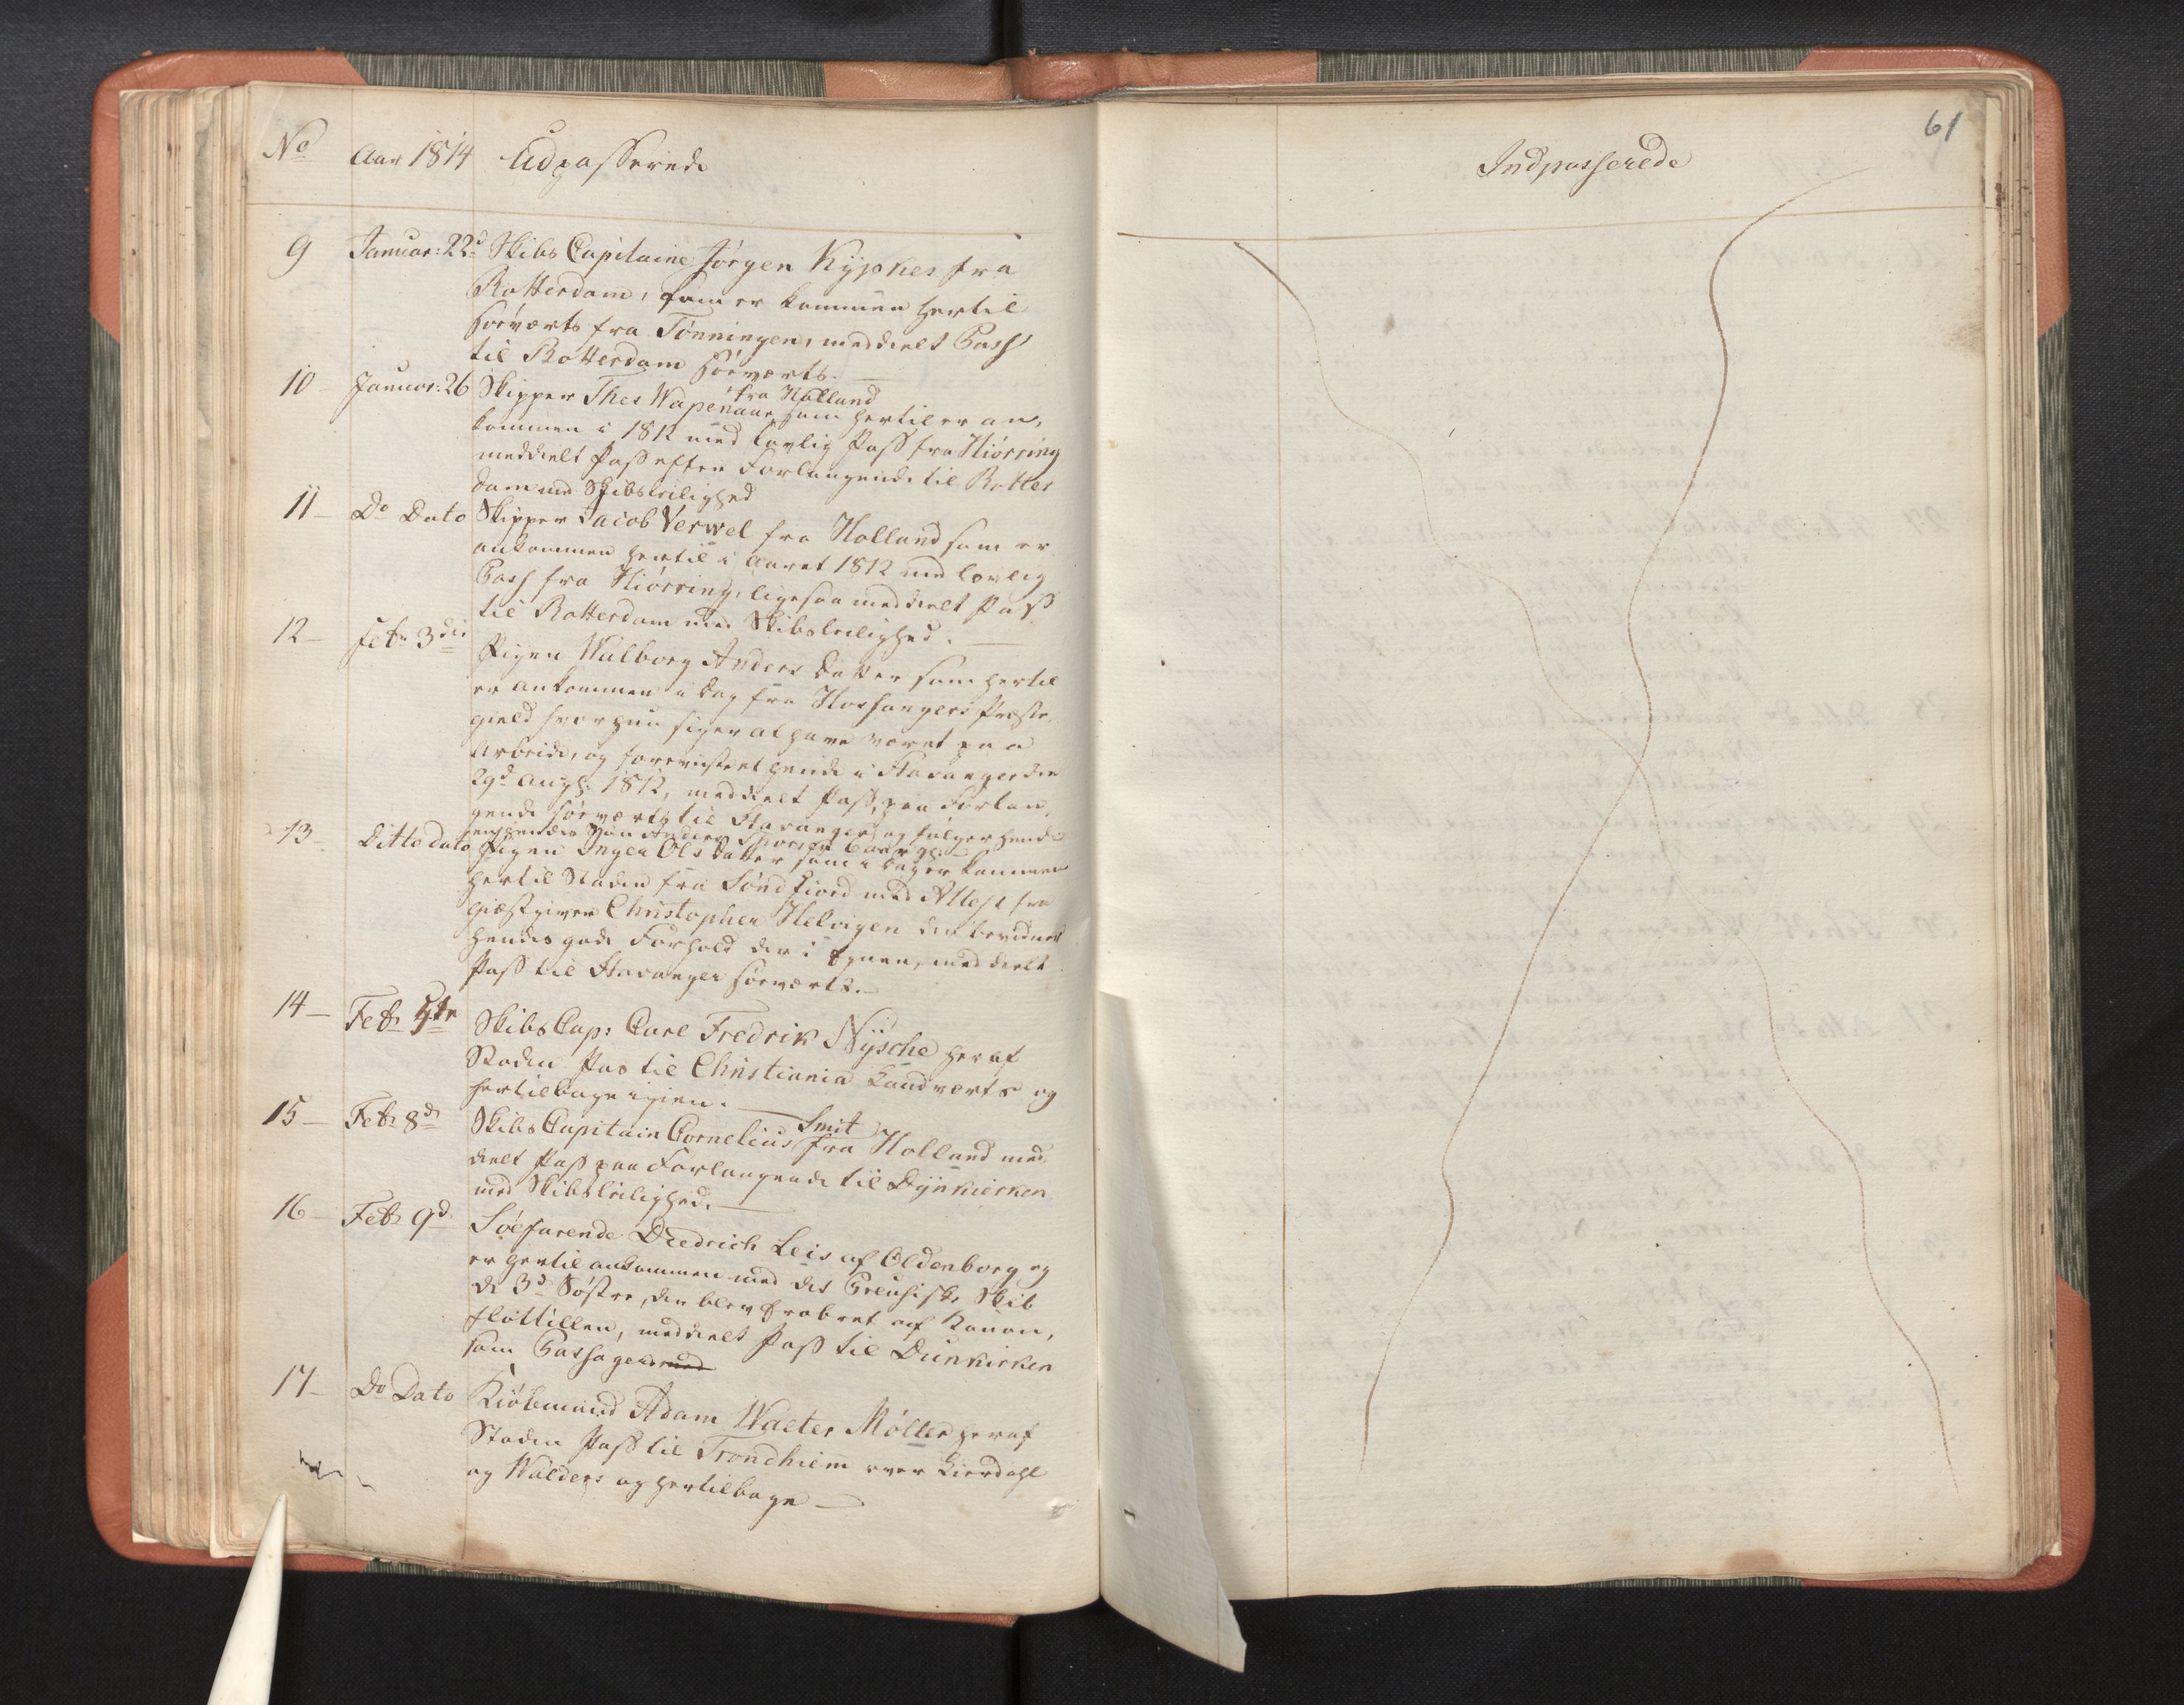 No Aar 1814 Udpasserede
9 Januar: 22d Skibs Capitaine Jørgen Kÿpkes fra
Rotterdam, som er kommen hertil
søeværts fra Tønningen, meddeelt Pass
til Rotterdam søeværts.
10 Januar: 26 Skipper Thes Wapenaar fra Holland som hertil er an,
kommen i 1812 med lovlig Pass fra Hiørring
meddeelt Pass efter Forlangende til Rotter
dam med Skibsleilighed
11 Do Dato Skipper Jacob Verwel fra Holland som er
ankommen hertil i Aaret 1812 med lovlig
Pass fra Hiørring, ligesaa meddeelt Pass
til Rotterdam med Skibsleilighed.
12 Febr 3die Pigen Walborg Anders Datter som hertil
er ankommen i Dag fra Hosangers Præste,
gield hvor hun siger at have været paa
Arbeide, og foreviist et hende i Stavanger den
29d Augs: 1812, meddeelt Pass, paa Forlan,
gende søeværts til Stavanger, og følger hende
hendes Søn Anders
13 Ditto dato Pigen Inger Ols Datter som i Dag er kommen
hertil Staden fra Søndfiord med Attest fra
Giæstgiver Christopher Helvigen der bevidner
hendes gode Forhold der i Egnen, meddeelt
Pass til Stavanger søeværts.
14 Febr 5te Skibs Cap: Carl Fredrik Nÿsche her af
Staden Pas til Christiania Landværts og
hertilbage igien.
15 Febr 8d Skibs Capitain Cornelius Smit fra Holland med,
deelt Pass paa Forlangende til Dÿnkierken
med Skibsleilighed.
16 Febr 9d Søefarende Diedrich Leis af Oldenborg og
er hertil ankommen med det Preusiske Skib
de 3d Søstre, der blev Erobret af Kanon,
flottillen, meddeelt Pass til Dünkirken
som Passager med
17 Do Dato Kiøbmand Adam Walter Møller her af
Staden Pass til Trondhiem over Lierdahl
og Walders og hertilbage
Indpasserede
61